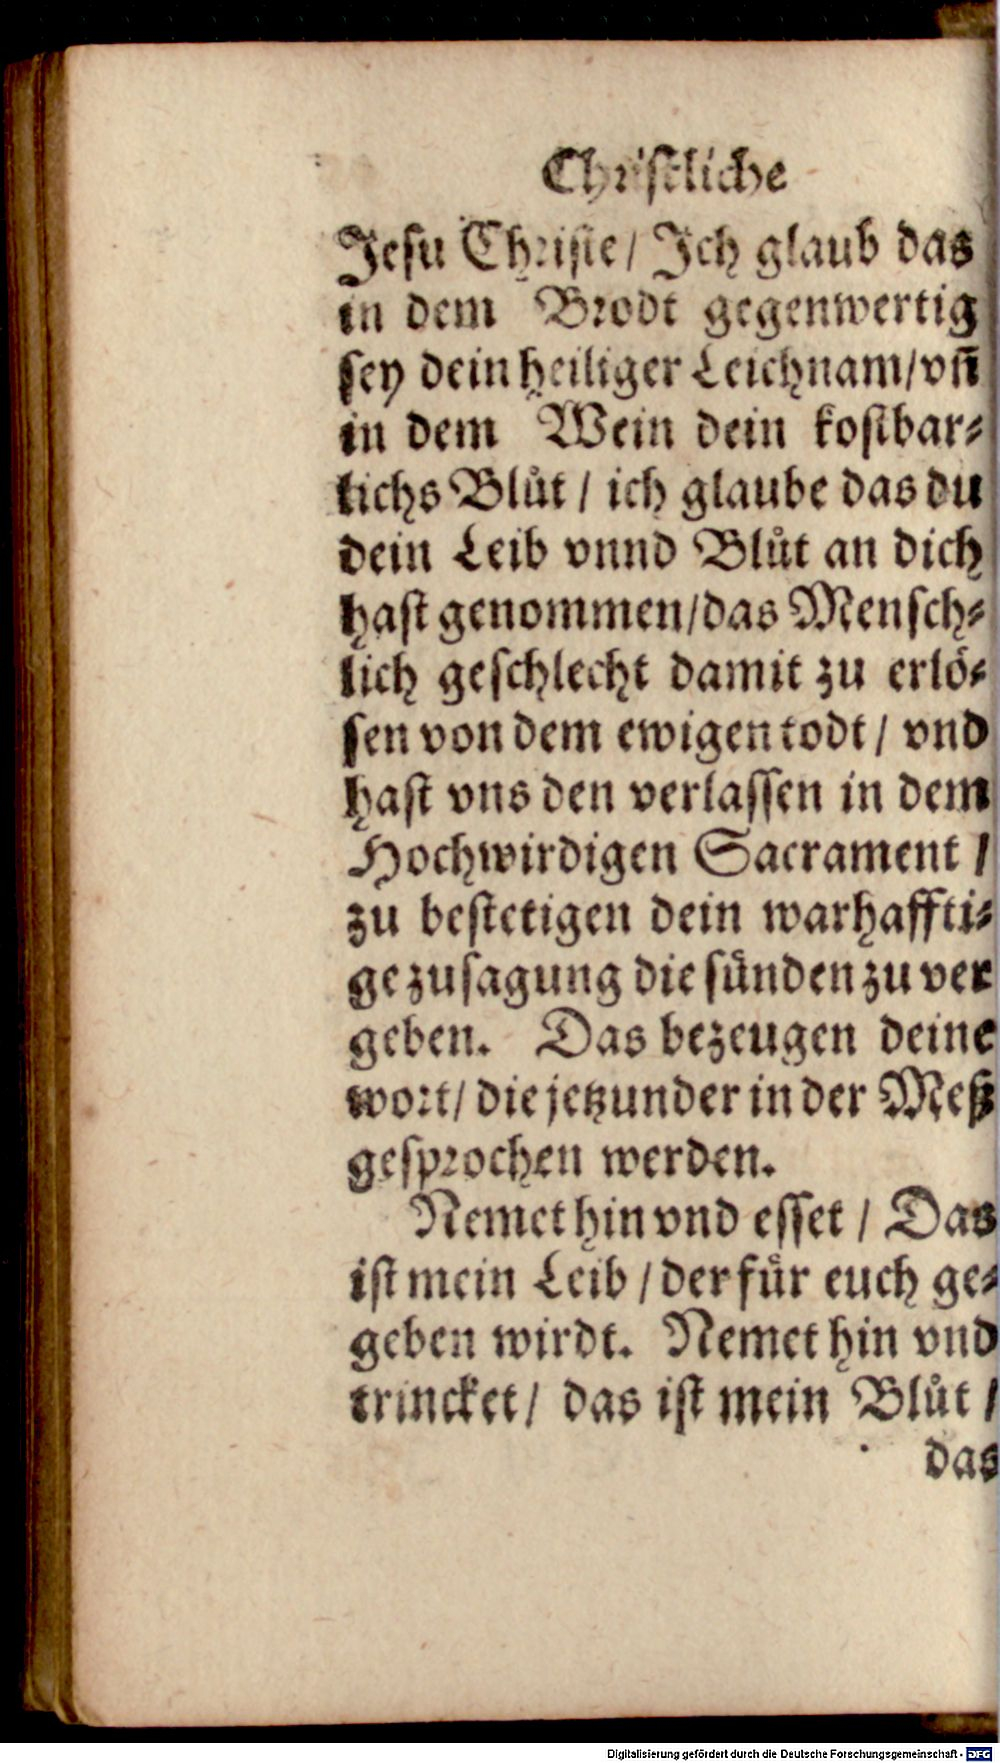 Christliche
Jesu Christe / Ich glaub das
in dem Brodt gegenwertig
sey dein heiliger Leichnam / vñ
in dem Wein dein kostbar-
lichs Blůt / ich glaube das du
dein Leib vnnd Blůt an dich
hast genommen / das Mensch-
lich geschlecht damit zu erlö-
sen von dem ewigen todt / vnd
hast vns den verlassen in dem
Hochwirdigen Sacrament /
zu bestetigen dein warhaffti-
ge zusagung die sünden zu ver
geben. Das bezeugen deine
wort / die jetzunder in der Meß
gesprochen werden.
Nemet hin vnd esset / Das
ist mein Leib / der für euch ge-
geben wirdt. Nemet hin vnd
trincket / das ist mein Blůt /
das
Digitalisierung gefördert durch die Deutsche Forschungsgemeinschaft - DFG